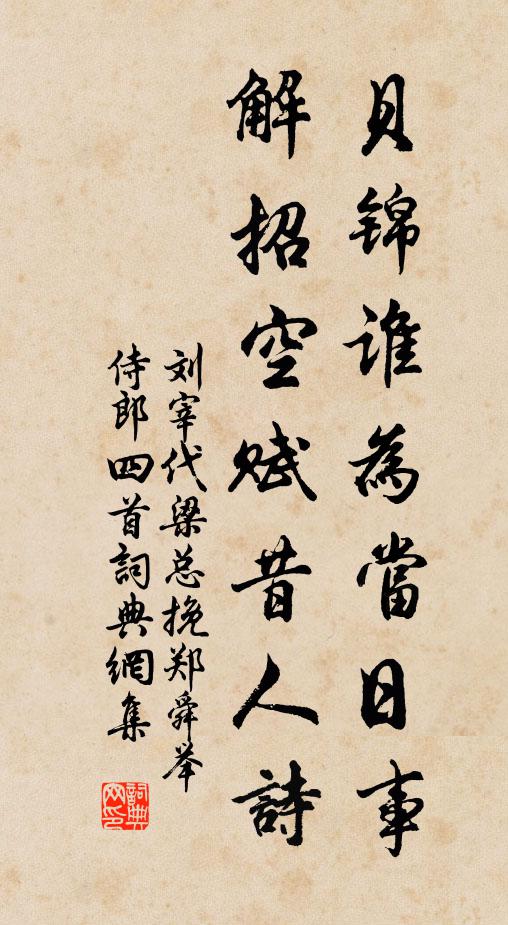 貝锦谁為當日事
解招空赋昔人詩
刘宰代梁总挽郑舜举
侍郎四首詞典網集
詞典网印